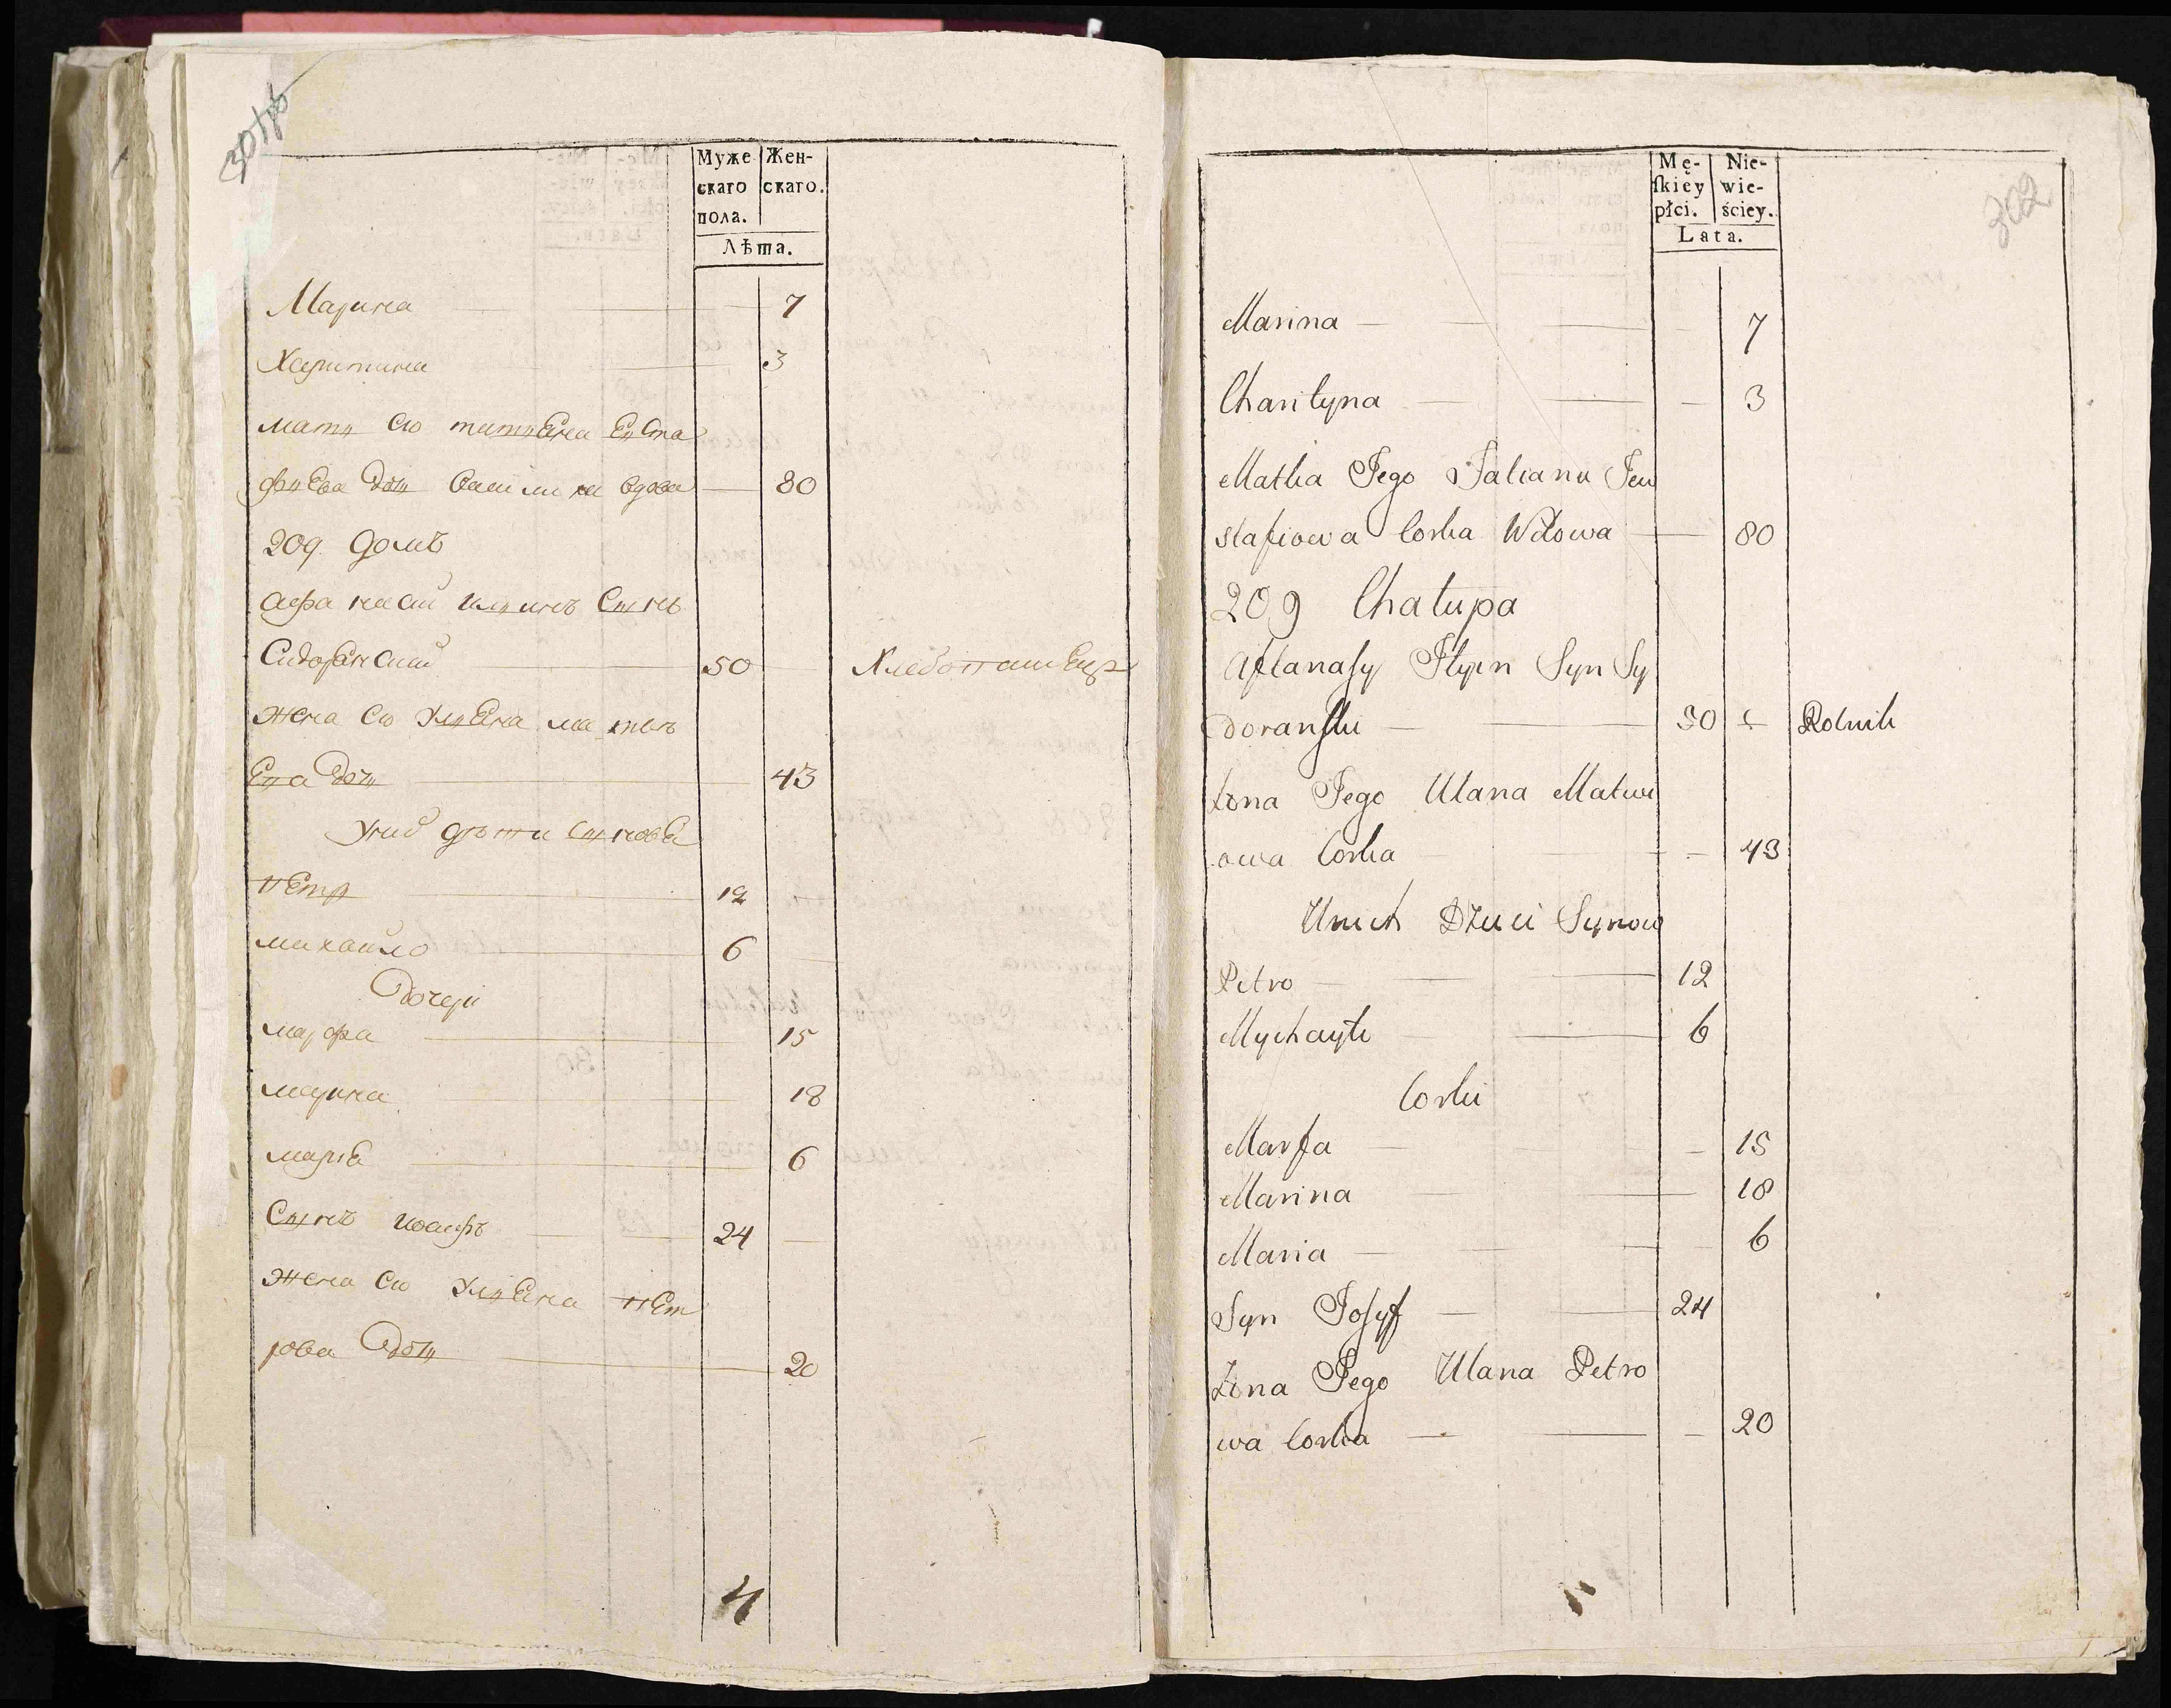 Муже Жен-
скаго скаго.
пола.
Лѣта.
Марина 7
Харитина 3
мать его татьяна Евста
фьева дочь вдова 80
209 домъ
афанасий сынъ
Сидоранский 50 Хлебопашецъ
жена его ульяна матвъ
ева дочь 43
уних дѣти сыновья
петр 12
михайло 6
дочери
марфа 15
марина 18
мария 6
Сынъ иосифъ 24
жена его ульяна пет
рова дочь 20
4
302
Mę- Nie-
skiey wie-
płci. ściey.
Lata.
Marina 7
Charityna 3
Matka Jego Tatiana Jew
stafiowa Corka Wdowa 80
209 Chałupa
Aftanasy Jlyin Syn Sy
doranski 50 Rolnik
Żona Jego Ulana Matwi
owa Corka 43
Unich Dzieci Synow
Petro 12
Mychayło 6
Corki
Marfa 15
Marina 18
Maria 6
Syn Josyf 24
Żona Jego Ulana Petro
wa Corka 20